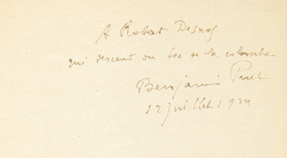 A Robert Desnos
qui descend du bec de la colombe
Benjamin Péret
12 juillet 1924